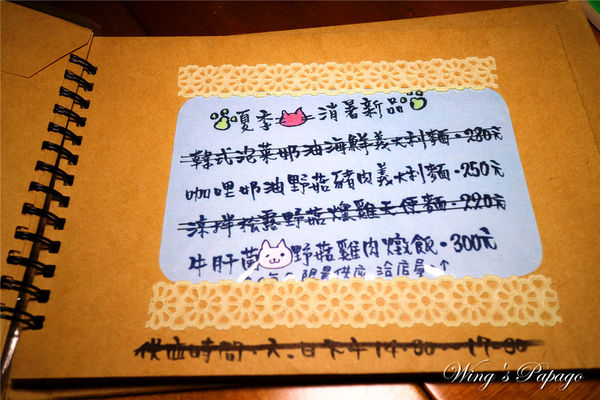 嗄季 消暑新品
韓式泡菜奶油海鮮義大利麵·280元
咖哩奶油野菇豬肉義大利麵·250元
涼拌松露野菇燻雞天使麵·220元
牛肝菌野菇雞肉燉飯·300元
限量供應 洽店員
供應時間·六、日下午14:30～17:30
Wing's Papago